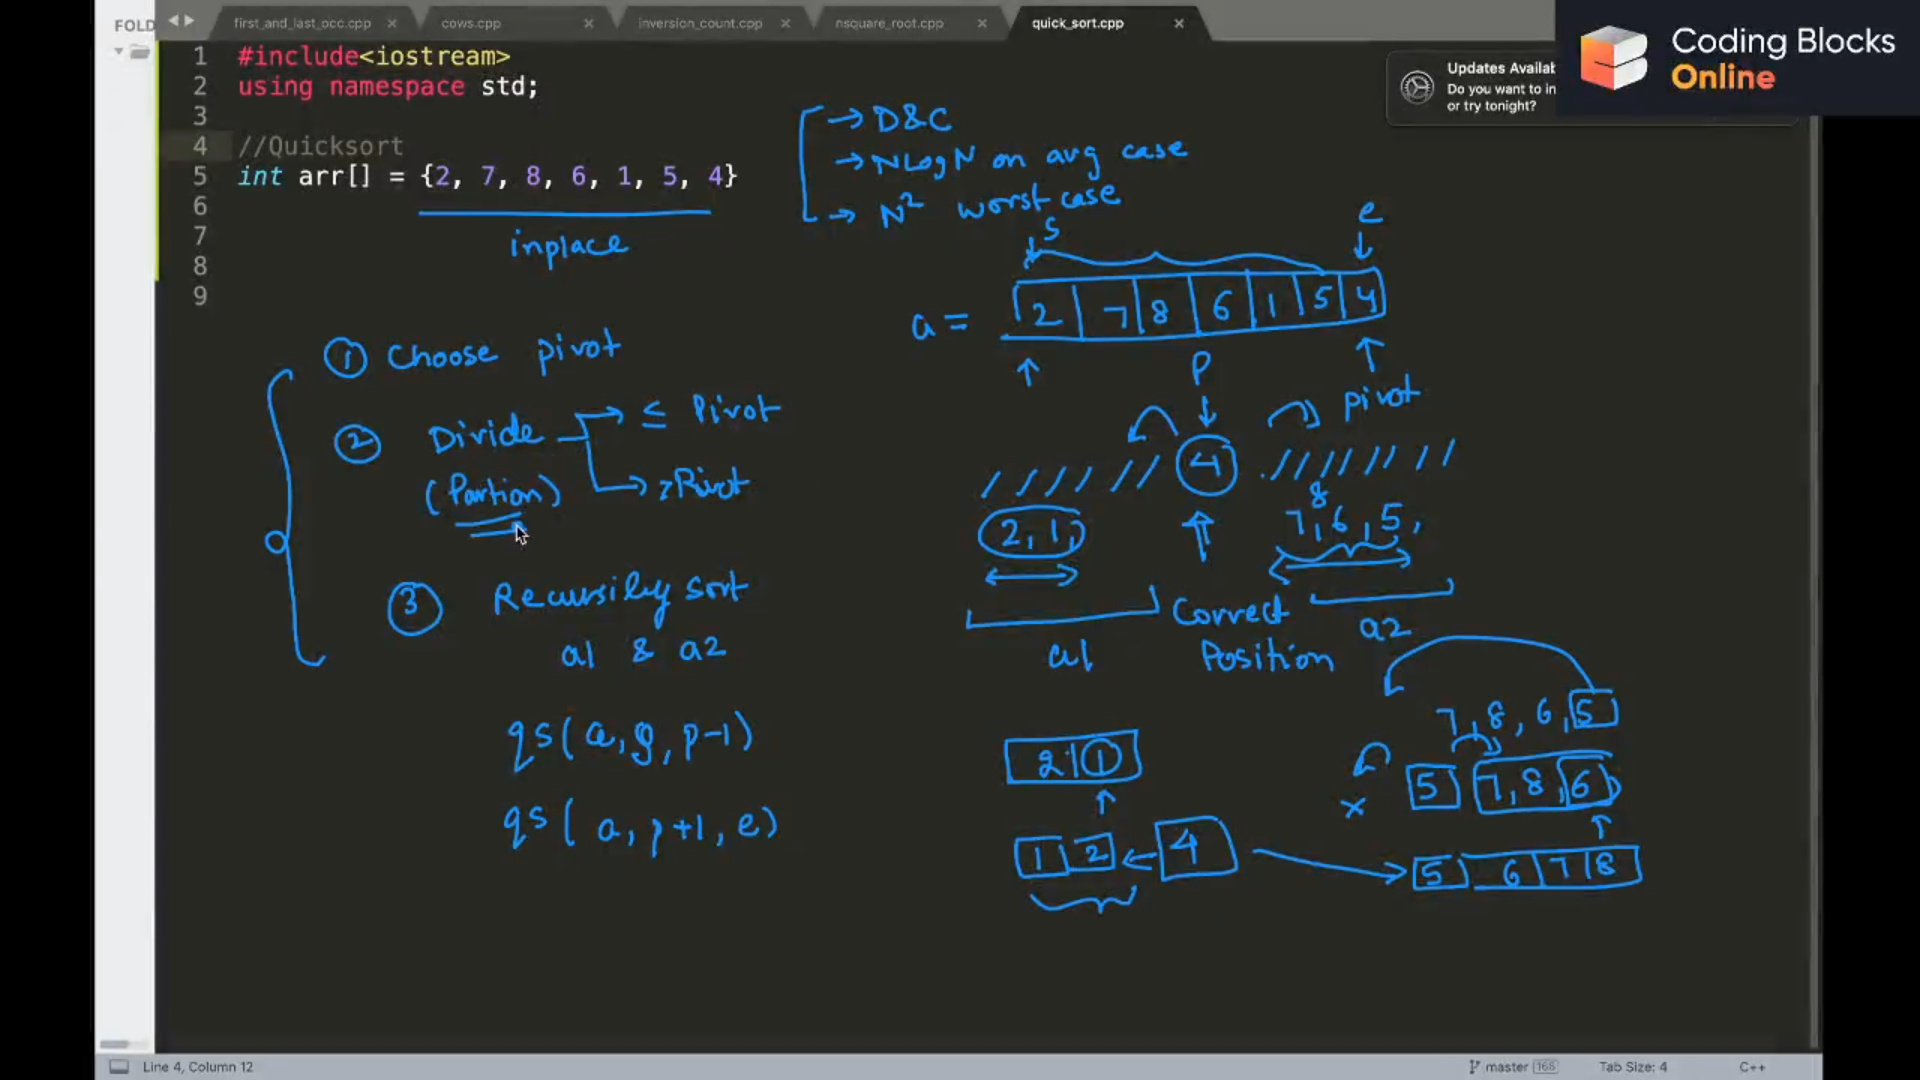 FOLD
first_and_last_occ.cpp × cows.cpp × inversion_count.cpp × nsquare_root.cpp × quick_sort.cpp ×
Coding Blocks
Online
Updates Availab
Do you want to in
or try tonight?
1 #include<iostream>
2 using namespace std;
3
4 //Quicksort
5 int arr[] = {2, 7, 8, 6, 1, 5, 4}
6
7
8
9
inplace
→ D&C
→ NLogN on avg case
→ N² worst case
s
e
a = 2 7 8 6 1 5 4
① Choose pivot
② Divide → ≤ Pivot
(Partion) → >Pivot
③ Recursily sort
a1 & a2
qs(a, s, p-1)
qs(a, p+1, e)
P
pivot
4
2, 1,
7, 8 6, 5,
Correct
Position
a1
a2
2 1
1 2 ← 4
7, 8, 6, 5
x 5 7, 8, 6
5 6 7 8
Line 4, Column 12
master 168
Tab Size: 4
C++